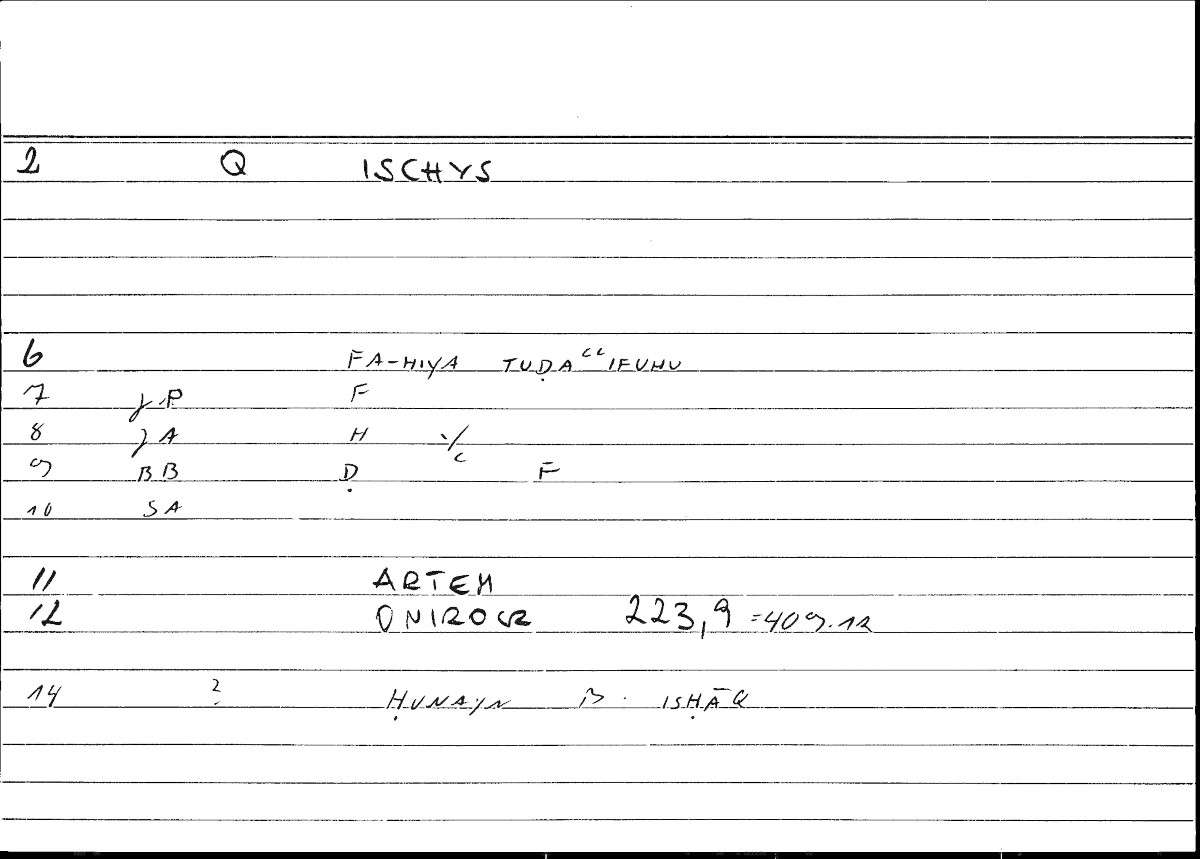 2 Q ISCHYS
6 FA-HIYA TUḌAʿʿIFUHU
7 F
8 A H
9 BB Ḍ F
10 SA
11 ARTEM
12 ONIROCR 223,9 =409.12
14 ? ḤUNAYN B. ISḤĀQ